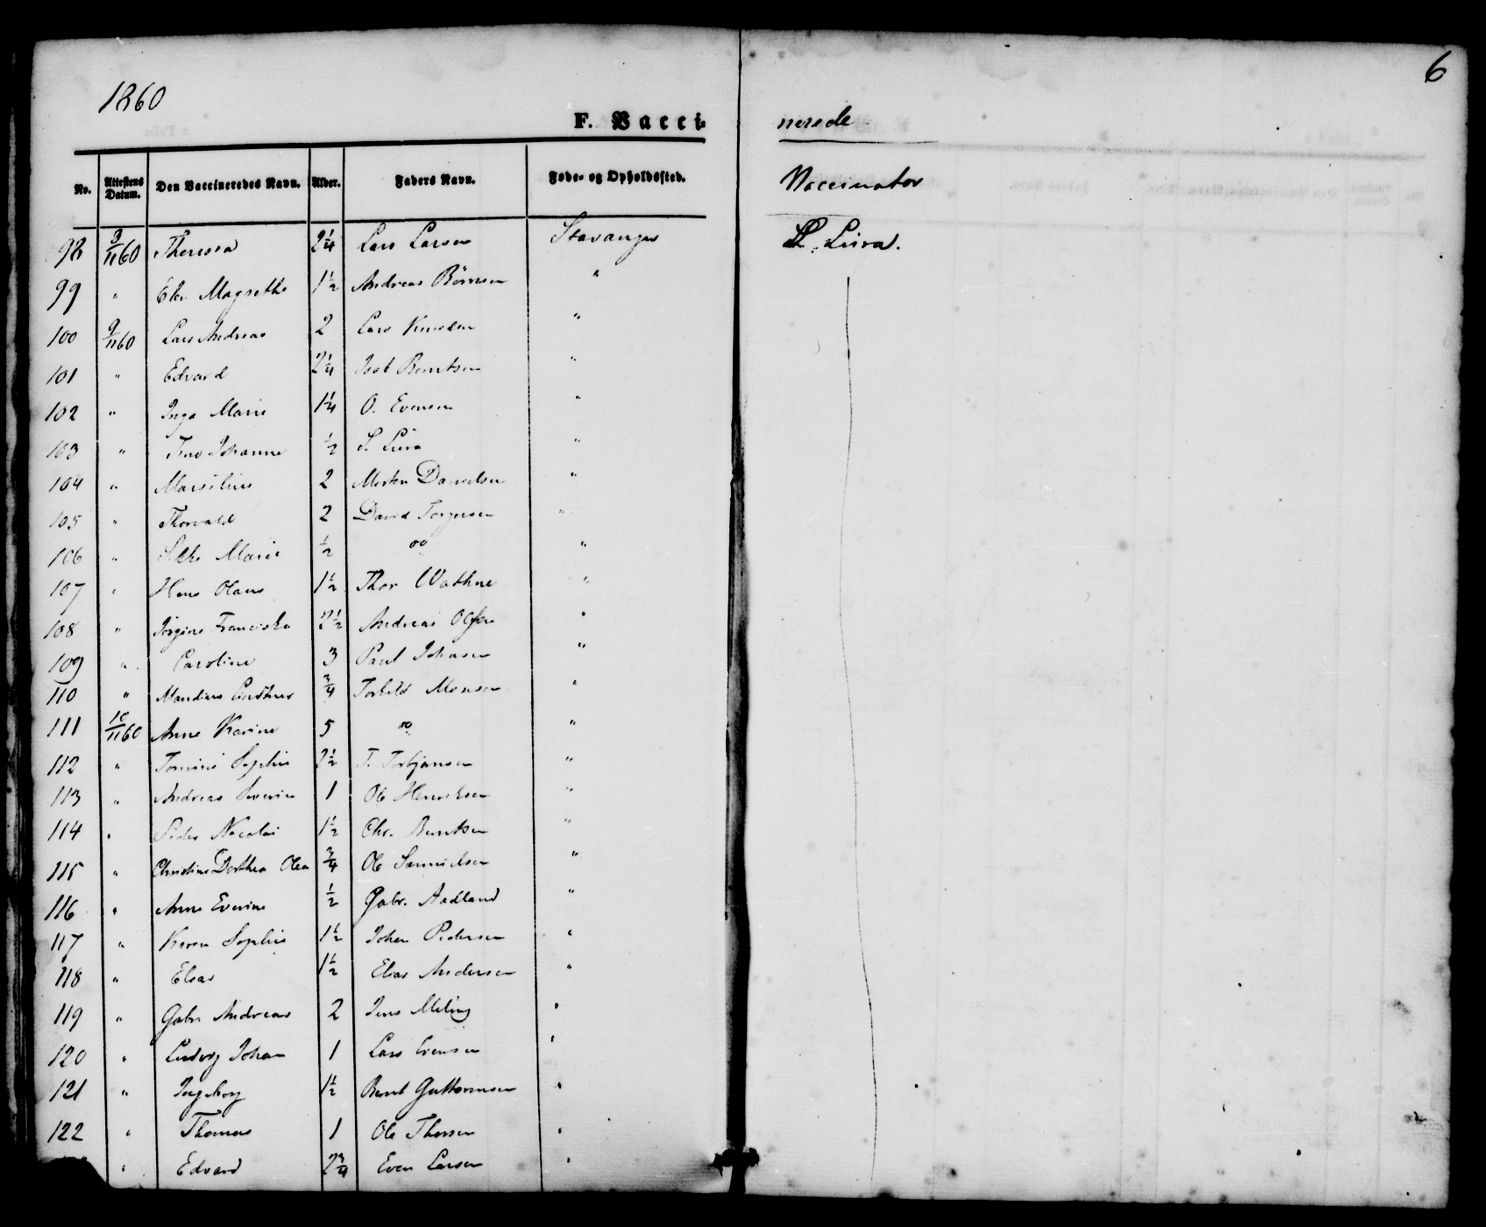 6
1860
F. Vacci-
nerede
No. Attestens Datum. Den Vaccineredes Navn. Alder. Faders Navn. Føde- og Opholdssted. Vaccinator
98 3/11 60 Theresa 2 1/4 Lars Larsen Stavanger Lura.
99 " 1 1/2 Andreas "
100 9/11 60 Lars Andreas 2 Lars Knudsen "
101 " Edvard 2 1/4 Berntsen "
102 " Inga Marie 1 1/4 O. Evensen "
103 " Johanne 1/2 S. Lura "
104 " 2 Morten Danielsen "
105 " Thorvald 2 David Torgersen "
106 " Marie 1/2 do "
107 " Hans Olaus 1 1/2 Thor Wathne "
108 " Jørgine Franciska 2 1/2 Andreas Olsen "
109 " Caroline 3 Paul Johnsen "
110 " 3/4 Torkild Monsen "
111 10/11 60 Anne Karine 5 do "
112 " Sophie 2 1/2 T. Torbjønsen "
113 " Andreas Severin 1 Ole Henriksen "
114 " Peder Nicolai 1 1/2 Chr. Berntsen "
115 " Christine Dorthea Olea 3/4 Ole Samuelsen "
116 " Anne Everine 1/2 Gabr. Aadland "
117 " Karen Sophie 1 1/2 Johan Pedersen "
118 " Elias 1 1/2 Elias Andersen "
119 " Gabr. Andreas 2 Jens Meling "
120 " Ludvig Johan 1 Lars Evensen "
121 " Ingeborg 1 1/2 Bernt Guttormsen "
122 " Thomas 1 Ole Thorsen "
" Edvard 2 3/4 Even Larsen "